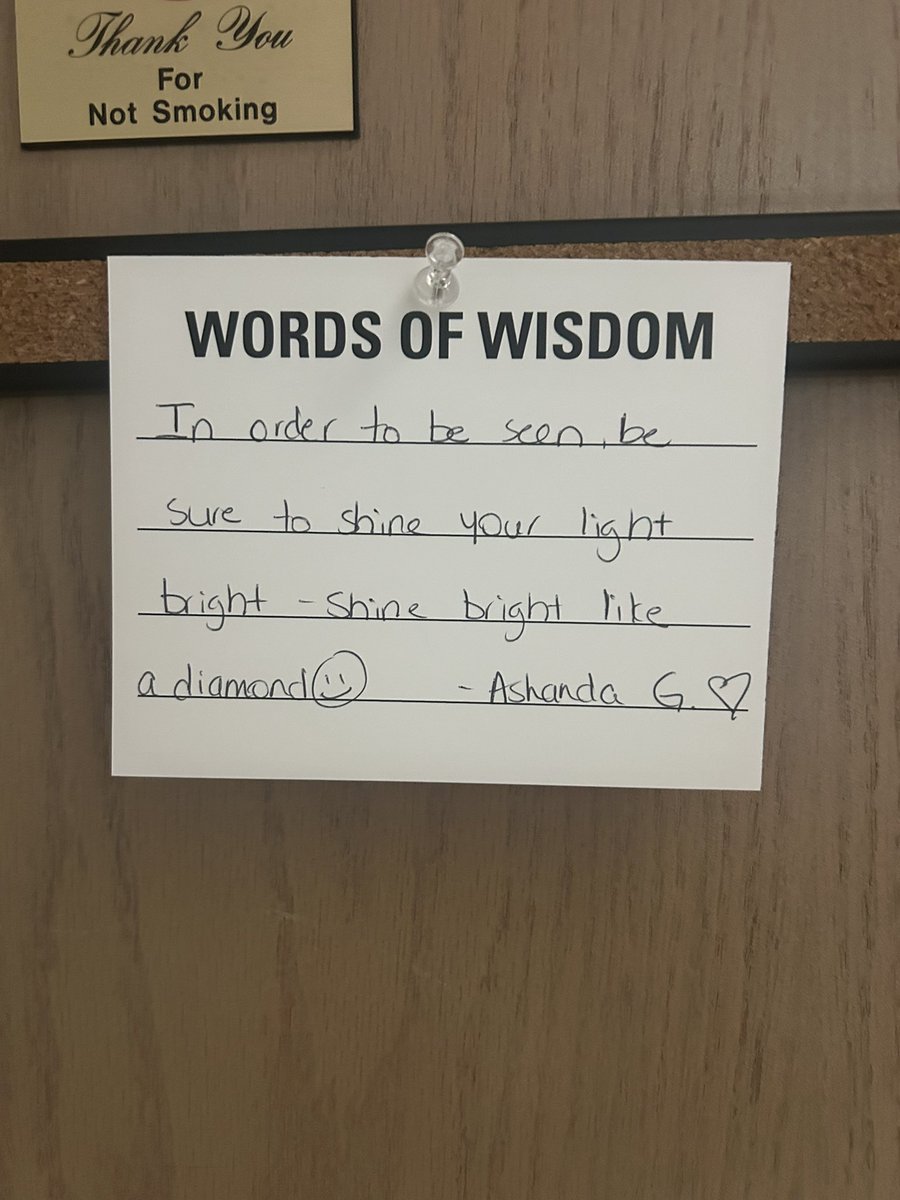 Thank You
For
Not Smoking
WORDS OF WISDOM
In order to be seen, be
sure to shine your light
bright - shine bright like
a diamond☺ - Ashanda G.♡